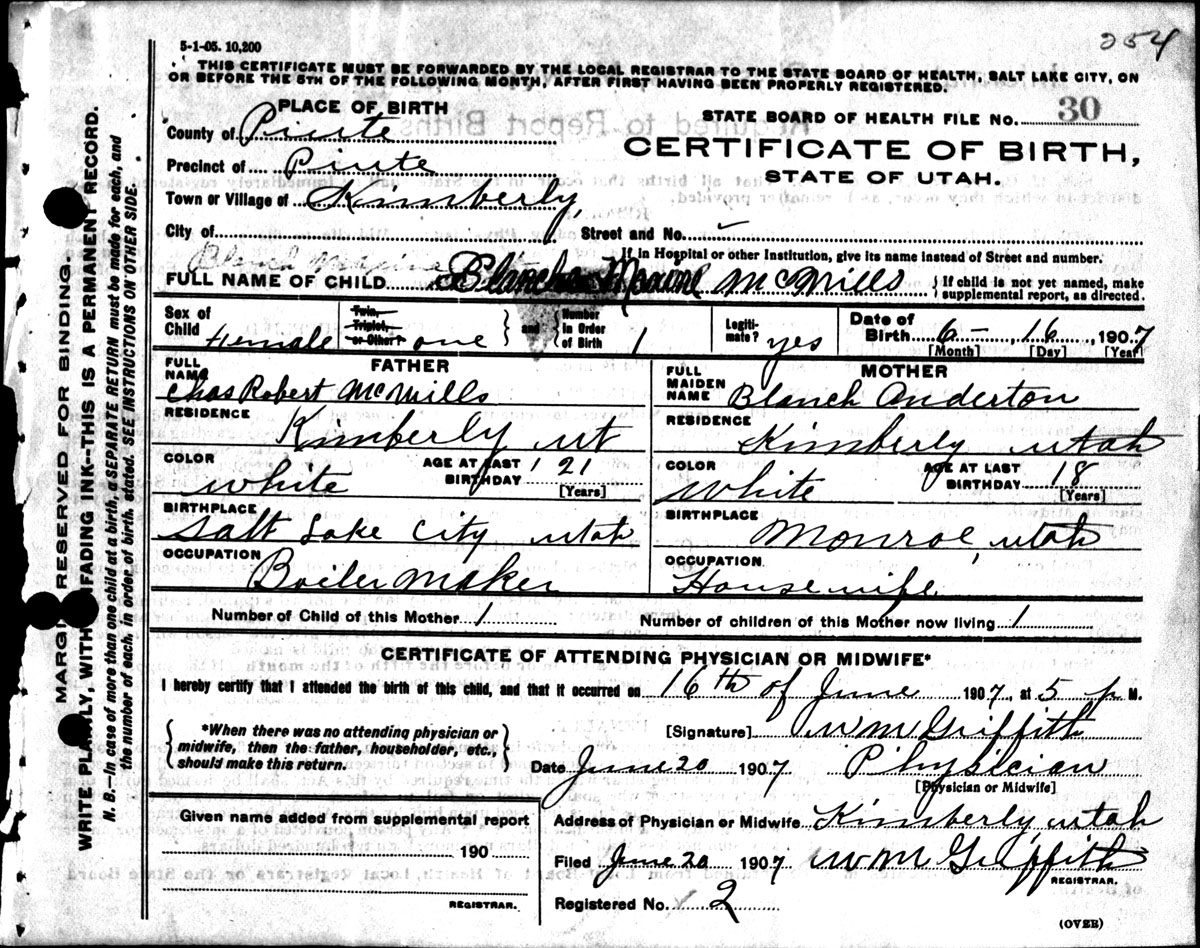 254
5-1-05. 10,200
THIS CERTIFICATE MUST BE FORWARDED BY THE LOCAL REGISTRAR TO THE STATE BOARD OF HEALTH, SALT LAKE CITY, ON
OR BEFORE THE 5TH OF THE FOLLOWING MONTH, AFTER FIRST HAVING BEEN PROPERLY REGISTERED.
PLACE OF BIRTH
STATE BOARD OF HEALTH FILE No. 30
County of Piute
CERTIFICATE OF BIRTH,
Precinct of Piute
STATE OF UTAH.
Town or Village of Kimberly
City of
Street and No. -
If in Hospital or other Institution, give its name instead of Street and number.
FULL NAME OF CHILD Blanche Maxine McMills
If child is not yet named, make
supplemental report, as directed.
Sex of Child Female
Twin, Triplet, or Other? one
and
Number In Order of Birth 1
Legiti-mate? yes
Date of Birth 6-, 16, 1907
[Month] [Day] [Year]
FATHER
FULL NAME Chas Robert McMills
RESIDENCE
Kimberly ut
COLOR white
AGE AT LAST BIRTHDAY 21
[Years]
BIRTHPLACE
Salt Lake City utah
OCCUPATION
Boiler Maker
MOTHER
FULL MAIDEN NAME Blanch Anderton
RESIDENCE
Kimberly utah
COLOR white
AGE AT LAST BIRTHDAY 18
[Years]
BIRTHPLACE
Monroe, utah
OCCUPATION
Housewife
Number of Child of this Mother 1
Number of children of this Mother now living 1
CERTIFICATE OF ATTENDING PHYSICIAN OR MIDWIFE*
I hereby certify that I attended the birth of this child, and that it occurred on 16th of June 1907, at 5 p M.
*When there was no attending physician or
midwife, then the father, householder, etc.,
should make this return.
[Signature] Wm Griffith
Date June 20 1907 Physician
[Physician or Midwife]
Given name added from supplemental report
190
REGISTRAR.
Address of Physician or Midwife Kimberly utah
Filed June 20 1907 Wm Griffith
REGISTRAR.
Registered No. 2
(OVER)
MARGIN RESERVED FOR BINDING.
WRITE PLAINLY, WITH FADING INK--THIS IS A PERMANENT RECORD.
N. B.--In case of more than one child at a birth, a SEPARATE RETURN must be made for each, and
the number of each, in order of birth, stated. SEE INSTRUCTIONS ON OTHER SIDE.